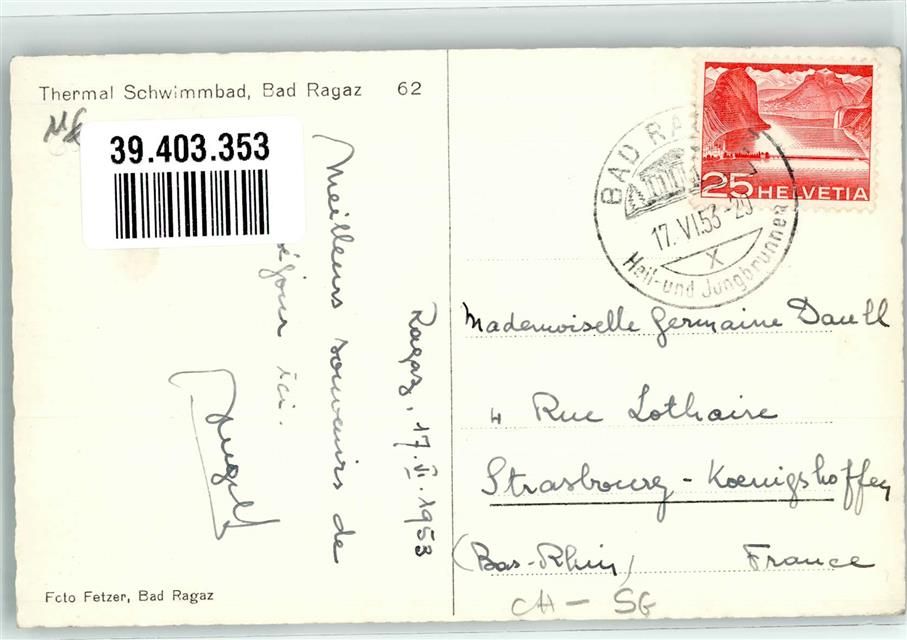 Thermal Schwimmbad, Bad Ragaz 62
39.403.353
Meilleurs souvenirs de
séjour ici.
Ragaz, 17.VI.1953
25 HELVETIA
BAD RAGAZ
17.VI.53-20
X
Heil- und Jungbrunnen
Mademoiselle Germaine Daull
4 Rue Lothaire
Strasbourg - Kœnigshoffen
(Bas-Rhin) France
Foto Fetzer, Bad Ragaz
CH - SG